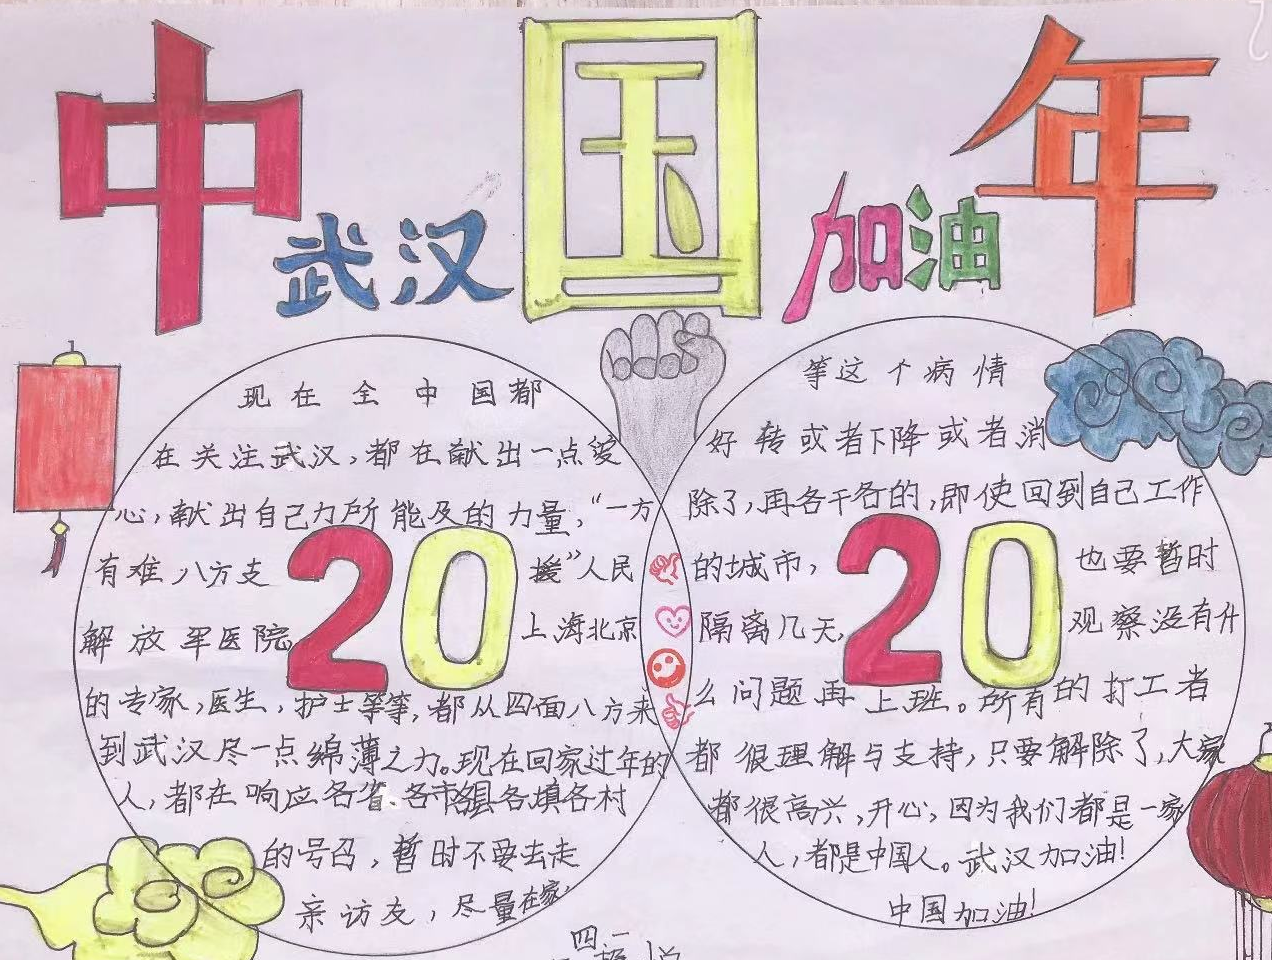 中国年
武汉加油
现在全中国都
在关注武汉,都在献出一点爱
心,献出自己力所能及的力量,“一方
有难八方支
援”人民
解放军医院
上海北京
2020
的专家,医生,护士等等,都从四面八方来
到武汉尽一点绵薄之力。现在回家过年的
人,都在响应各省、各市各县各填各村
的号召,暂时不要去走
亲访友,尽量在家,
等这个病情
好转或者下降或者消
除了,再各干各的,即使回到自己工作
的城市,
也要暂时
隔离几天,
观察没有什
2020
么问题再上班。所有的打工者
都很理解与支持,只要解除了,大家
都很高兴,开心,因为我们都是一家
人,都是中国人。武汉加油!
中国加油!
四一